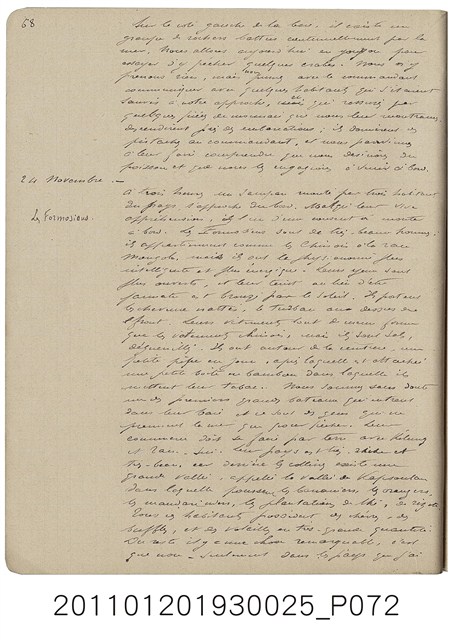 58
Sur le côté gauche de la baie. il existe un
groupe de rochers battus continuellement par la
mer. Nous allons aujourd'hui en youyou pour
essayer d'y pêcher quelques crabes. Nous n'y
prenons rien, mais nous avec le commandant
communiquer avec quelques habitants qui s'étaient
sauvés à notre approche, et qui rassurés par
quelques pièces de monnaie que nous leur montrons,
descendirent près des embarcations; ils donnèrent des
pistaches au commandant, et nous parvînmes
à leur faire comprendre que nous désirions du
poisson et que nous les engagions à venir à bord.
24 Novembre. —
A trois heures un sampan monté par trois habitants
du pays s'approche du bord. Malgré leur vive
appréhension, ils l'un d'eux à monter
Les Formosiens.
à bord. Les Formosiens sont de très-beaux hommes;
ils appartiennent comme les Chinois à la race
Mongole, mais ils ont la physionomie plus
intelligente et plus énergique. Leurs yeux sont
plus ouverts, et leur teint au lieu d'être
jaunâtre est bronzé par le soleil. Ils portent
les cheveux nattés, le turban au dessus du
front. Leurs vêtements sont de même forme
que les vêtements chinois, mais ils sont sales,
déguenillés. Ils ont autour de la ceinture une
petite pipe en , après laquelle est attachée
une petite boîte en bambou dans laquelle ils
mettent leur tabac. Nous sommes sans doute
un des premiers grands bateaux qui entrent
dans leur baie et ce sont des gens qui ne
prennent la mer que pour pêcher. Leur
commerce doit se faire par terre avec Kelung
et . Leur pays est très-riche et
très-beau, car derrière les collines existe une
grande vallée, appelée la vallée de Kapsoulan
dans laquelle poussent les bananiers, les orangers,
les mandariniers, les plantations de thé, de
Tous ces habitants possèdent des chèvres, des
buffles, et des volailles en très-grande quantité.
Du reste il y a une chose remarquable, c'est
que non-seulement dans les pays que j'ai
201101201930025_P072